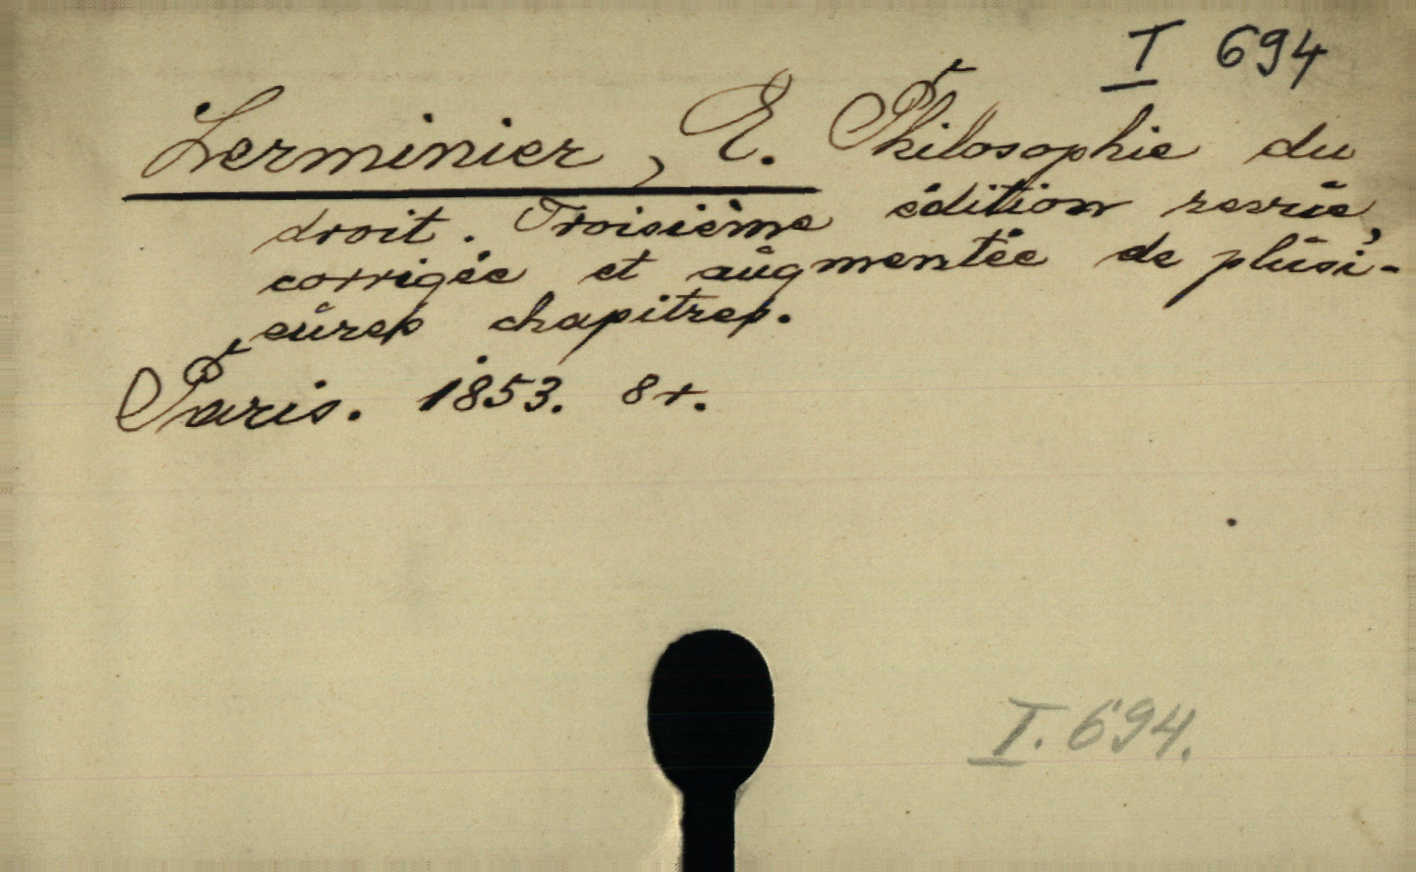 I 694
Lerminier, E. Philosophie du
droit. Troisième édition revüe,
corrigée et aügmentée de plüsi-
eüres chapitres.
Paris. 1853. 8+.
I. 694.